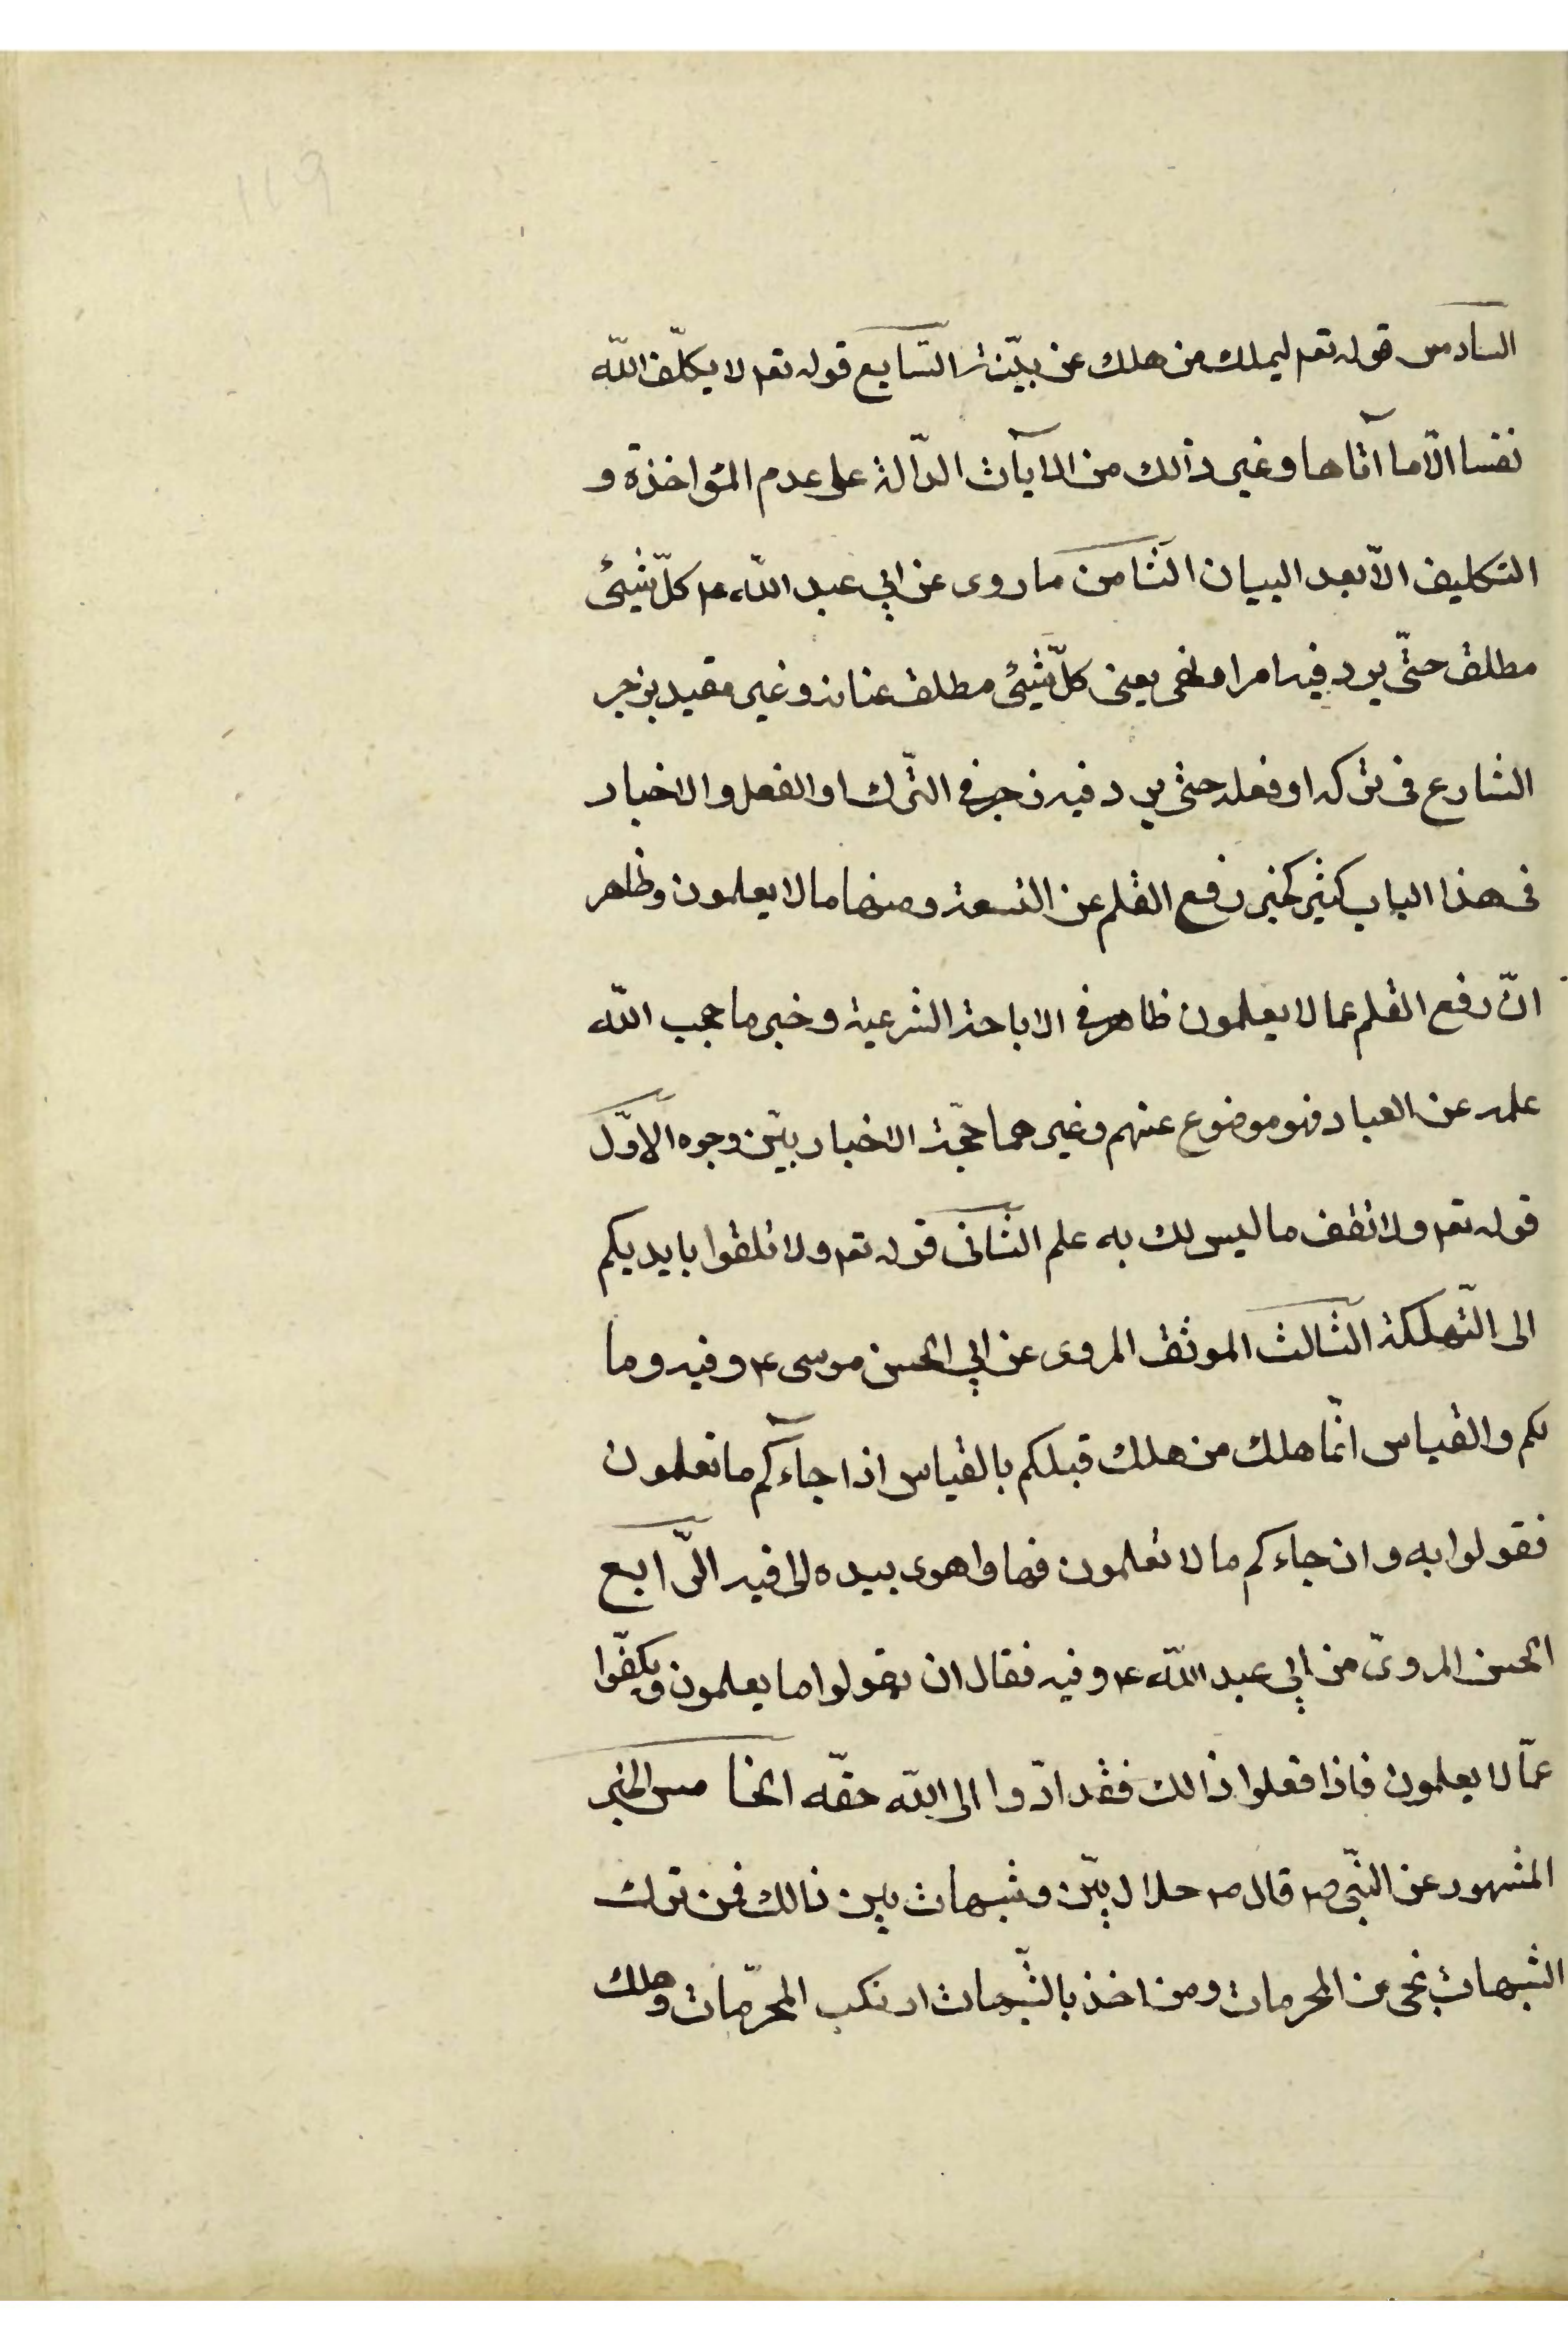 119
السادس قوله تعم ليهلك من هلك عن بيّنة السّابع قوله تعم لا يكلّف الله
نفسا الّا ما آتاها وغير ذالك من الايآت الدّالة على عدم المؤاخذة و
التكليف الّا بعد البيان الثامن ما روى عن ابي عبد اللّه ع كلّ شيئ
مطلق حتّى يرد فيه امر او نهى يعنى كلّ شيئ مطلق عنانه وغير مقيد بزجر
الشارع فى تركه او فعله حتى يرد فيه زجر فى التّرك او الفعل والاخبار
فى هذا الباب كثير كخبر رفع القلم عن التسعة ومنها ما لا يعلمون وظاهر
انّ رفع القلم عما لا يعلمون ظاهر فى الاباحة الشرعية وخبر ما حجب اللّه
علمه عن العباد فهو موضوع عنهم وغيرهما حجّة الاخباريّين وجوه الاوّل
قوله تعم ولا تقف ما ليس لك به علم الثانى قوله تعم ولا تلقوا بايديكم
الى التّهلكة الثالث الموثق المروى عن ابي الحسن موسى ع وفيه وما
لكم والقياس انّما هلك من هلك قبلكم بالقياس اذا جاءكم ما تعلمون
فقولوا به وان جاءكم ما لا تعلمون فها واهوى بيده الى فيه الرّابع
الحسن المروىّ من ابي عبد اللّه ع وفيه فقال ان يقولوا ما يعلمون ويكفّوا
عمّا لا يعلمون فاذا فعلوا ذالك فقد ادّوا الى اللّه حقّه الخامس الخبر
المشهور عن النبّى ص قال ص حلال بيّن وشبهات بين ذالك فمن ترك
الشبهات نجى من المحرمات ومن اخذ بالشّبهات ارتكب المحرّمات وهلك